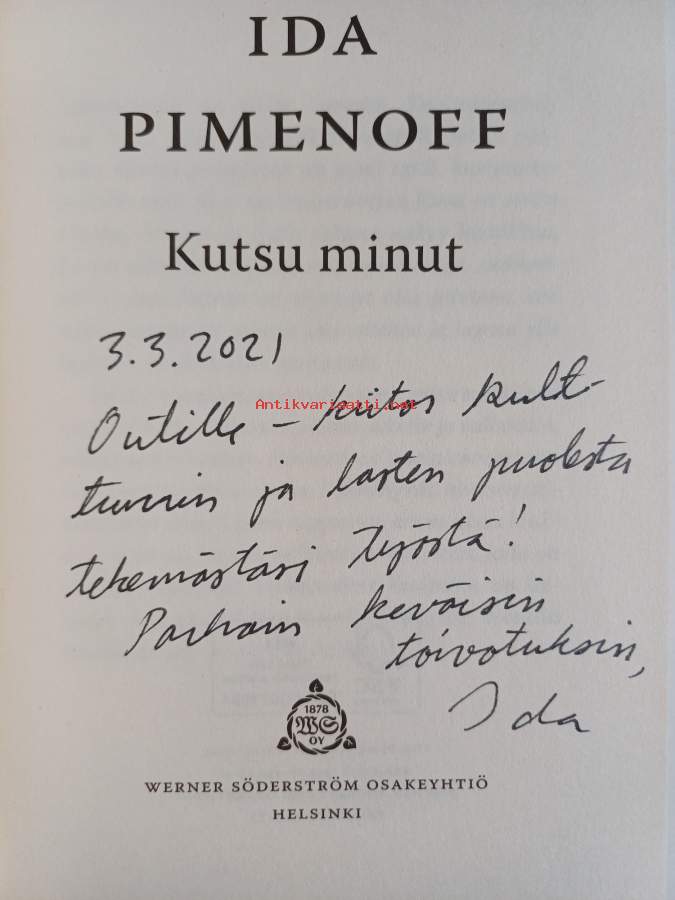 IDA
PIMENOFF
Kutsu minut
3.3.2021
Outille – kiitos kult-
Antikvariaatti.net
tuurin ja lasten puolesta
tekemästäsi työstä!
Parhain keväisin
toivotuksin,
Ida
1878
WS
OY
WERNER SÖDERSTRÖM OSAKEYHTIÖ
HELSINKI